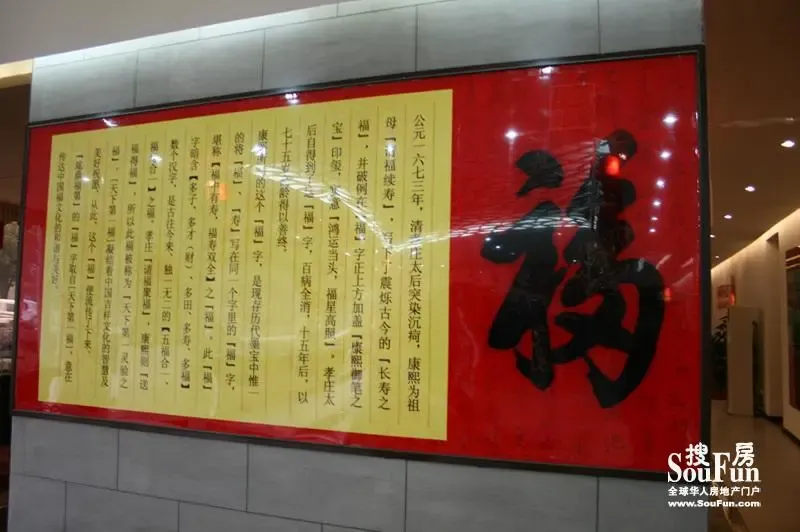 福
公元一六七三年，清孝庄太后突染沉疴，康熙为祖
母『请福续寿』，写下了震烁古今的『长寿之
福』，并破例在『福』字正上方加盖『康熙御笔之
宝』印玺，寓意『鸿运当头，福星高照』。孝庄太
后自得到了这『福』字，百病全消，十五年后，以
七十五岁高龄得以善终。
康熙 的这个『福』字，是现存历代墨宝中惟一
的将『福』、『寿』写在同一个字里的『福』字，
堪称『福中有寿，福寿双全』之『福』。此『福』
字暗含【多子、多才（财）、多田、多寿、多福】
数个汉字，是古往今来、独一无二的【五福合一、
福寿合一】之福。孝庄『请福聚福』，康熙则『送
福得福』，所以此福被称为『天下第一灵验之
福』。『天下第一福』凝结着中国吉祥文化的智慧及
美好祝愿。从此，这个『福』便流传了下来。
『 福第』的『福』字取自『天下第一福』，意在
传达中国福文化的和谐与美好。
搜房
SouFun
全球华人房地产门户
www.SouFun.com